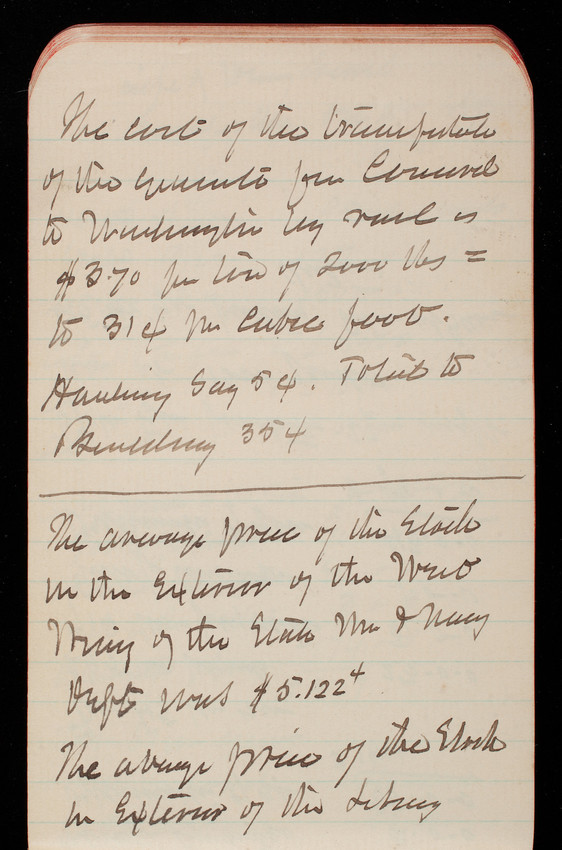 The cost of the transportation
of the granite from Concord
to Washington by rail is
$3.70 per ton of 2000 lbs =
to 31¢ per Cubic foot.
Hauling Say 5¢. Total to
Building 35¢
The average price of the Stock
in the Exterior of the West
Wing of the State War & Navy
Dept was $5.122⁴
The average price of the Stock
in Exterior of the Library